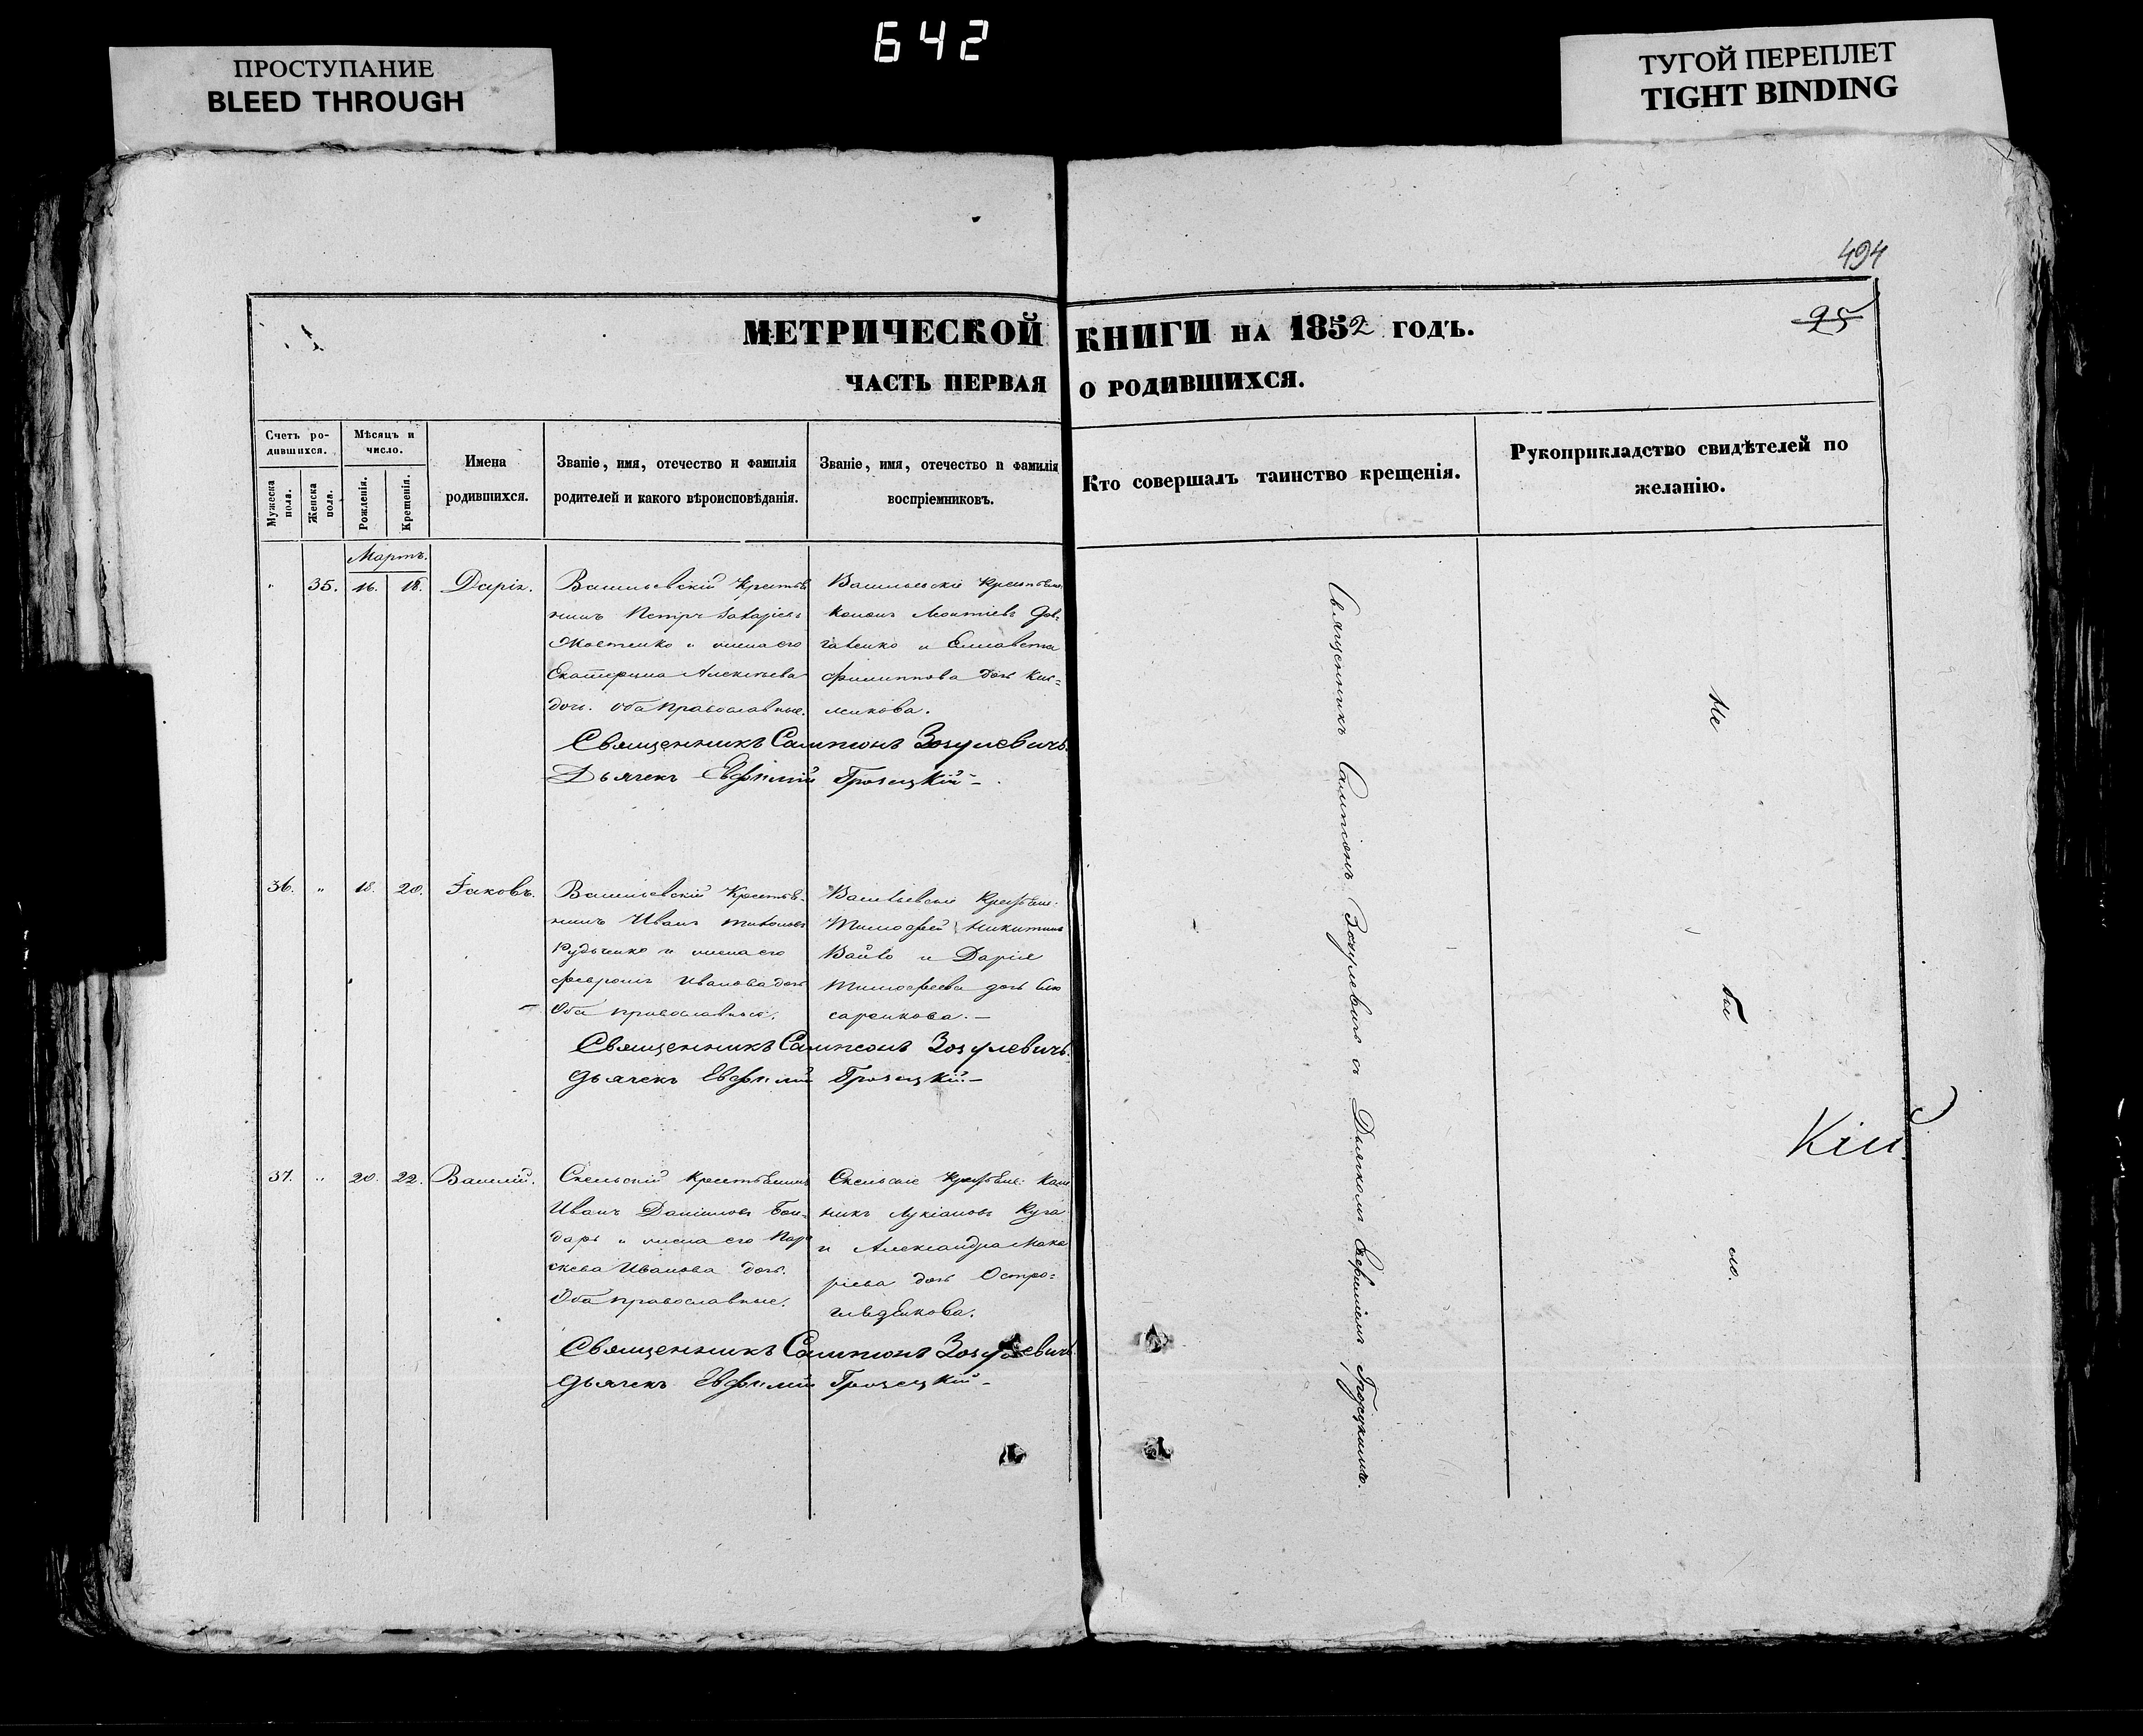 642
ПРОСТУПАНИЕ
BLEED THROUGH
ТУГОЙ ПЕРЕПЛЕТ
TIGHT BINDING
494
95
МЕТРИЧЕСКОЙ КНИГИ НА 1852 ГОДЪ.
ЧАСТЬ ПЕРВАЯ О РОДИВШИХСЯ.
Счетъ ро-
дившихся.
Мужеска пола.
Женска пола.
Мѣсяцъ и число.
Рожденія.
Крещенія.
Имена
родившихся.
Званіе, имя, отечество и фамилія
родителей и какого вѣроисповѣданія.
Званіе, имя, отечество и фамилія
воспріемниковъ.
Кто совершалъ таинство крещенія.
Рукоприкладство свидѣтелей по
желанію.
Мартъ.
" 35. 16. 18. Дарія.
Васильевскій Крестья
нинъ Петръ
и жена его
Екатерина Алексѣева
доч. оба православные.
Васильевскіе Крестьяне:
Леонтіевъ Дов-
галенко и Елисавета
Филиппова доч
Священникъ Сампсонъ Зозулевичъ.
Дьячекъ Евфимій Грозецкій
36. " 18. 20. Іаковъ.
Васильевскій Крестья-
нинъ Иванъ
Рудченко и жена его
Февронія Иванова доч
Оба православные.
Васильевскіе Крестьяне:
Тимофей Никитинъ
и Дарія
Тимофеева доч Слю
саренкова. —
Священникъ Сампсонъ Зозулевичъ.
Дьячекъ Евфимій Грозецкій. —
37. " 20. 22. Василій.
Скельскій Крестьянинъ
Иванъ Даніиловъ Бон-
дарь и жена его Пара
скева Иванова доч.
Оба православные.
Скельскіе Крестьяне:
Лукіановъ
и Александра Мака
ріева доч Остро-
Священникъ Сампсонъ Зозулевичъ
Дьячекъ Евфимій Грозецкій
Священникъ Сампсонъ Зозулевичъ съ Дьячкомъ Евфиміемъ Грозецкимъ.
Не
бы
ло.
Кій